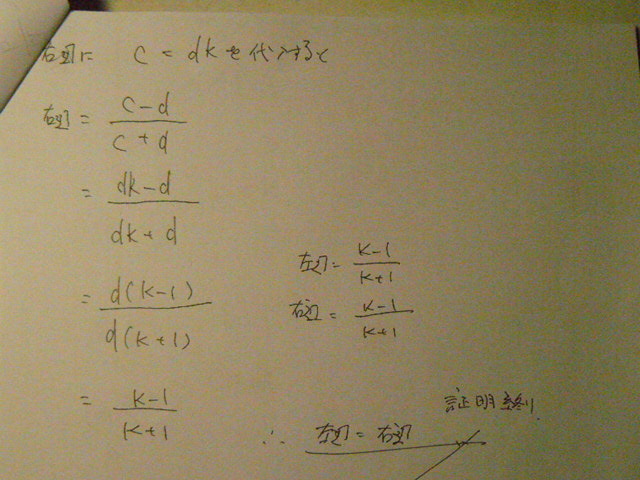 右辺に c = dkを代入すると
右辺 = c-d / c+d
= dk-d / dk+d
= d(k-1) / d(k+1)
= k-1 / k+1
左辺 = k-1 / k+1
右辺 = k-1 / k+1
∴ 左辺 = 右辺
証明終り.